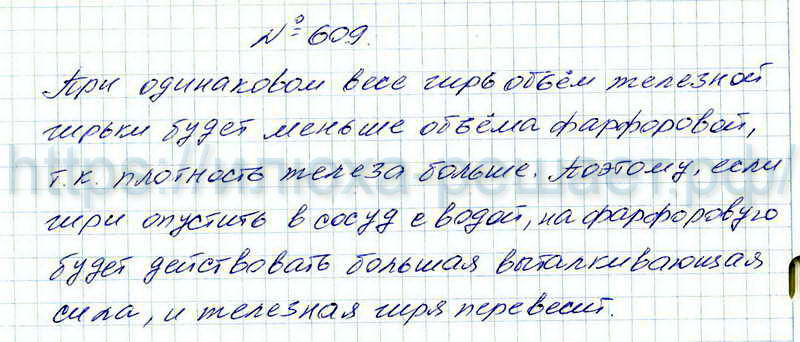 № 609.
При одинаковом весе гирь объём железной
гирьки будет меньше объёма фарфоровой,
т.к. плотность железа больше. Поэтому, если
гири опустить в сосуд с водой, на фарфоровую
будет действовать большая выталкивающая
сила, и железная гиря перевесит.